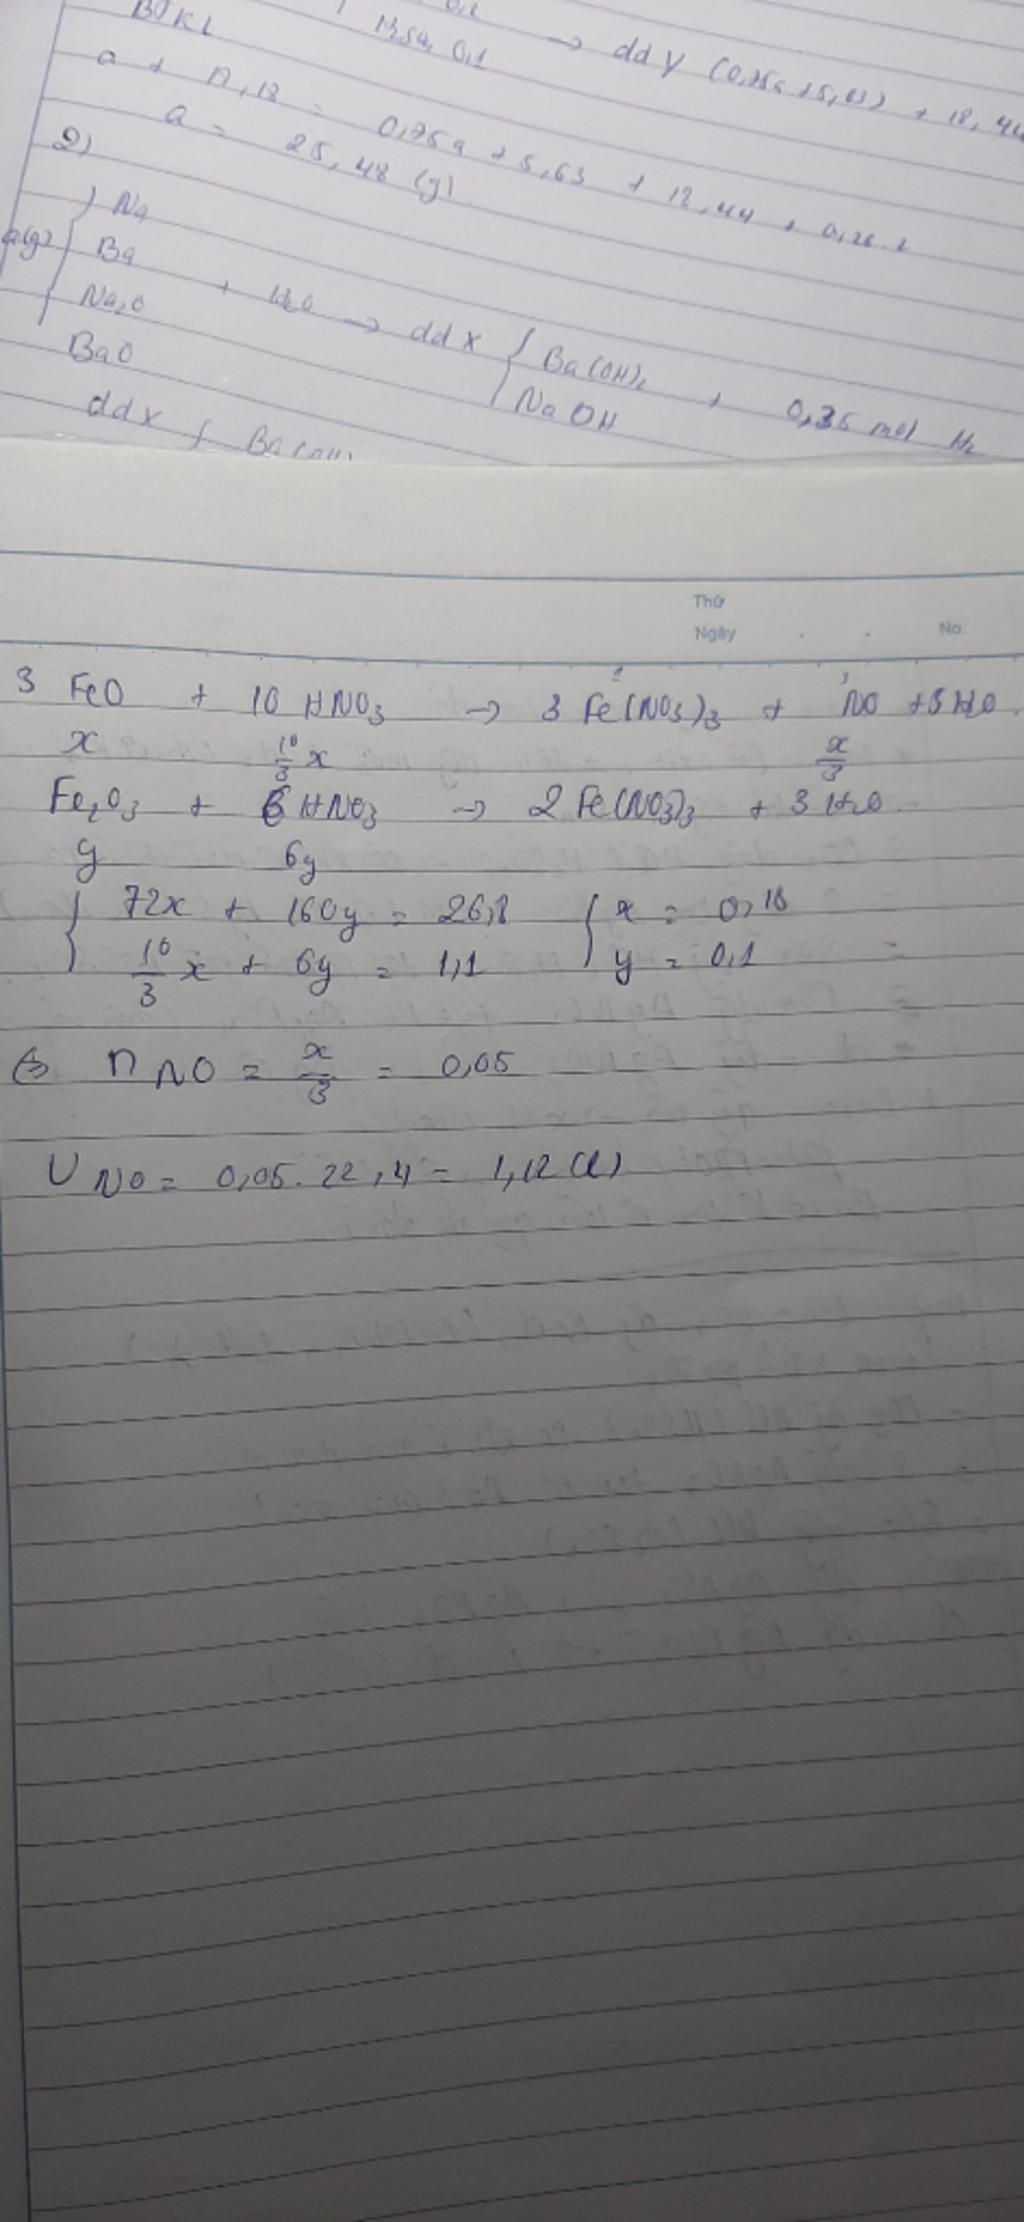 BTKL
0,1
→ dd Y (0,75a + 5,63) + 12,44
a + 12,18 = 0,75a + 5,63 + 12,44 + 0,26.2
a = 25,48 (g)
2)
a(g) { Na
Ba
Na₂O
BaO
+ H₂O → dd X { Ba(OH)₂
NaOH
+ 0,35 mol H₂
dd X { Ba(OH)₂
Thứ
Ngày . . No.
3 FeO + 10 HNO₃ → 3 Fe(NO₃)₃ + NO + 5 H₂O
x 10/3 x x/3
Fe₂O₃ + 6 HNO₃ → 2 Fe(NO₃)₃ + 3 H₂O
y 6y
{ 72x + 160y = 26,8 { x = 0,15
10/3 x + 6y = 1,1 y = 0,1
⇔ n NO = x/3 = 0,05
V NO = 0,05. 22,4 = 1,12 (l)